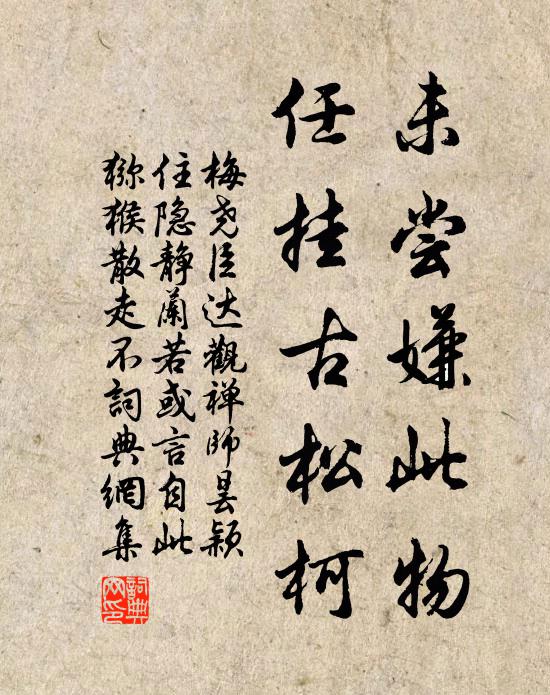 未尝嫌此物
任挂古松柯
梅尧臣达觀禅师昙颖
住隐静蘭若或言自此
猕猴散走不詞典網集
詞典网印